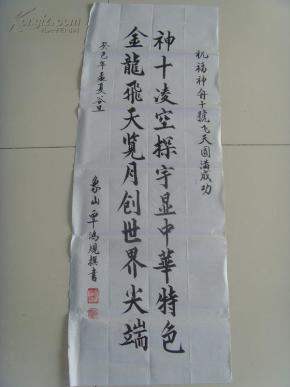 祝福神舟十號飞天圆滿成功
神十凌空探宇显中華特色
金龍飛天览月创世界尖端
癸巳年孟夏谷旦
象山覃鴻規撰書